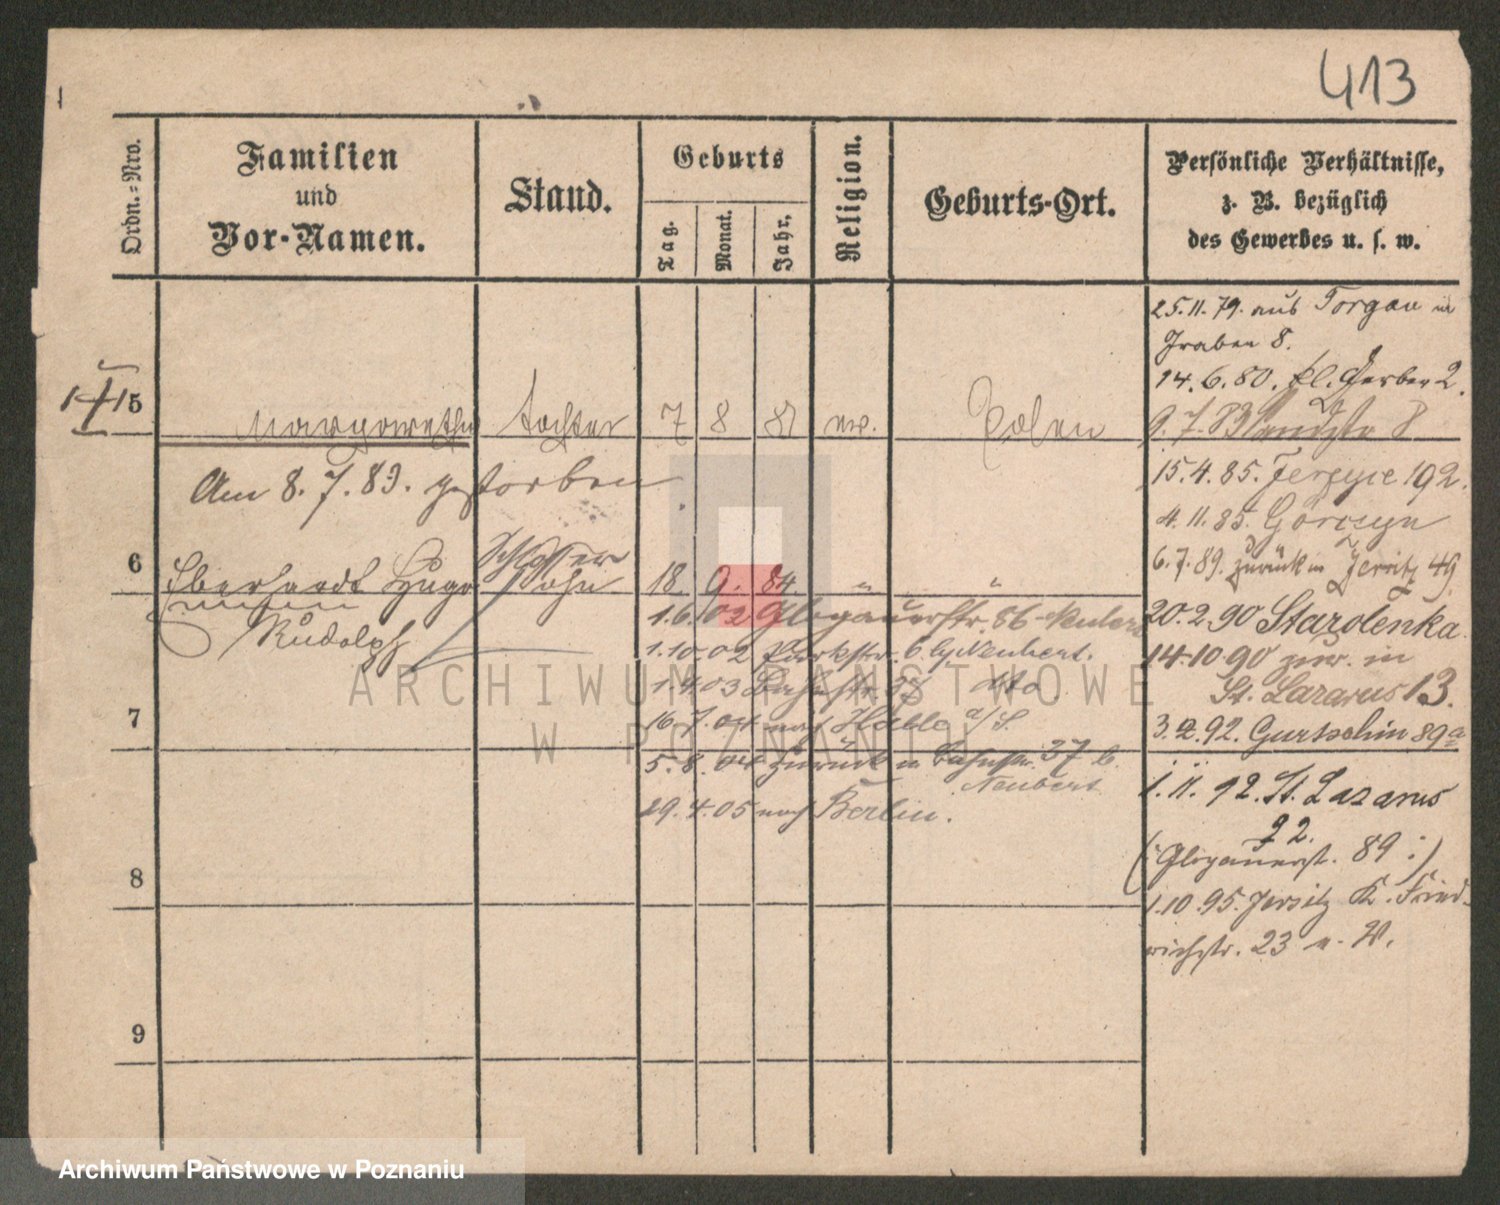 413
Ordn.=Nro.
Familien
und
Vor-Namen.
Stand.
Geburts
Tag.
Monat.
Jahr.
Religion.
Geburts-Ort.
Persönliche Verhältnisse,
z. B. bezüglich
des Gewerbes u. s. w.
5
Margarethe Tochter 7 8 81 ev. Posen
Am 8. 7. 83. gestorben
6
Eberhardt Hugo
Rudolph
Schlosser
Sohn
18. 9. 84. " "
1.6.02 Glogauerstr. 86
1.10.02 Parkstr. 6 b/ Neubert.
1.4.03 Bahnstr. 37 dto
16.7.04 nach Halle a/S.
5.8.04 zurück in Bahnstr. 37 b.
Neubert
29.4.05 nach Berlin.
7
8
9
25.11.79. aus Torgau in
Graben 8.
14.6.80. kl. Gerber 2.
9.7.83 8
15.4.85. Jerzyce 192.
4.11.85. Górczyn
6.7.89. zurück in Jersitz 49
20.2.90 Starolenka
14.10.90 zur. in
St. Lazarus 13.
3.2.92. Gurtschin 89a
1.11.92. St. Lazarus
22.
(: Glogauerst. 89 :)
1.10.95. Jersitz K. Fried-
richstr. 23 n. W.
ARCHIWUM PAŃSTWOWE
W POZNANIU
Archiwum Państwowe w Poznaniu